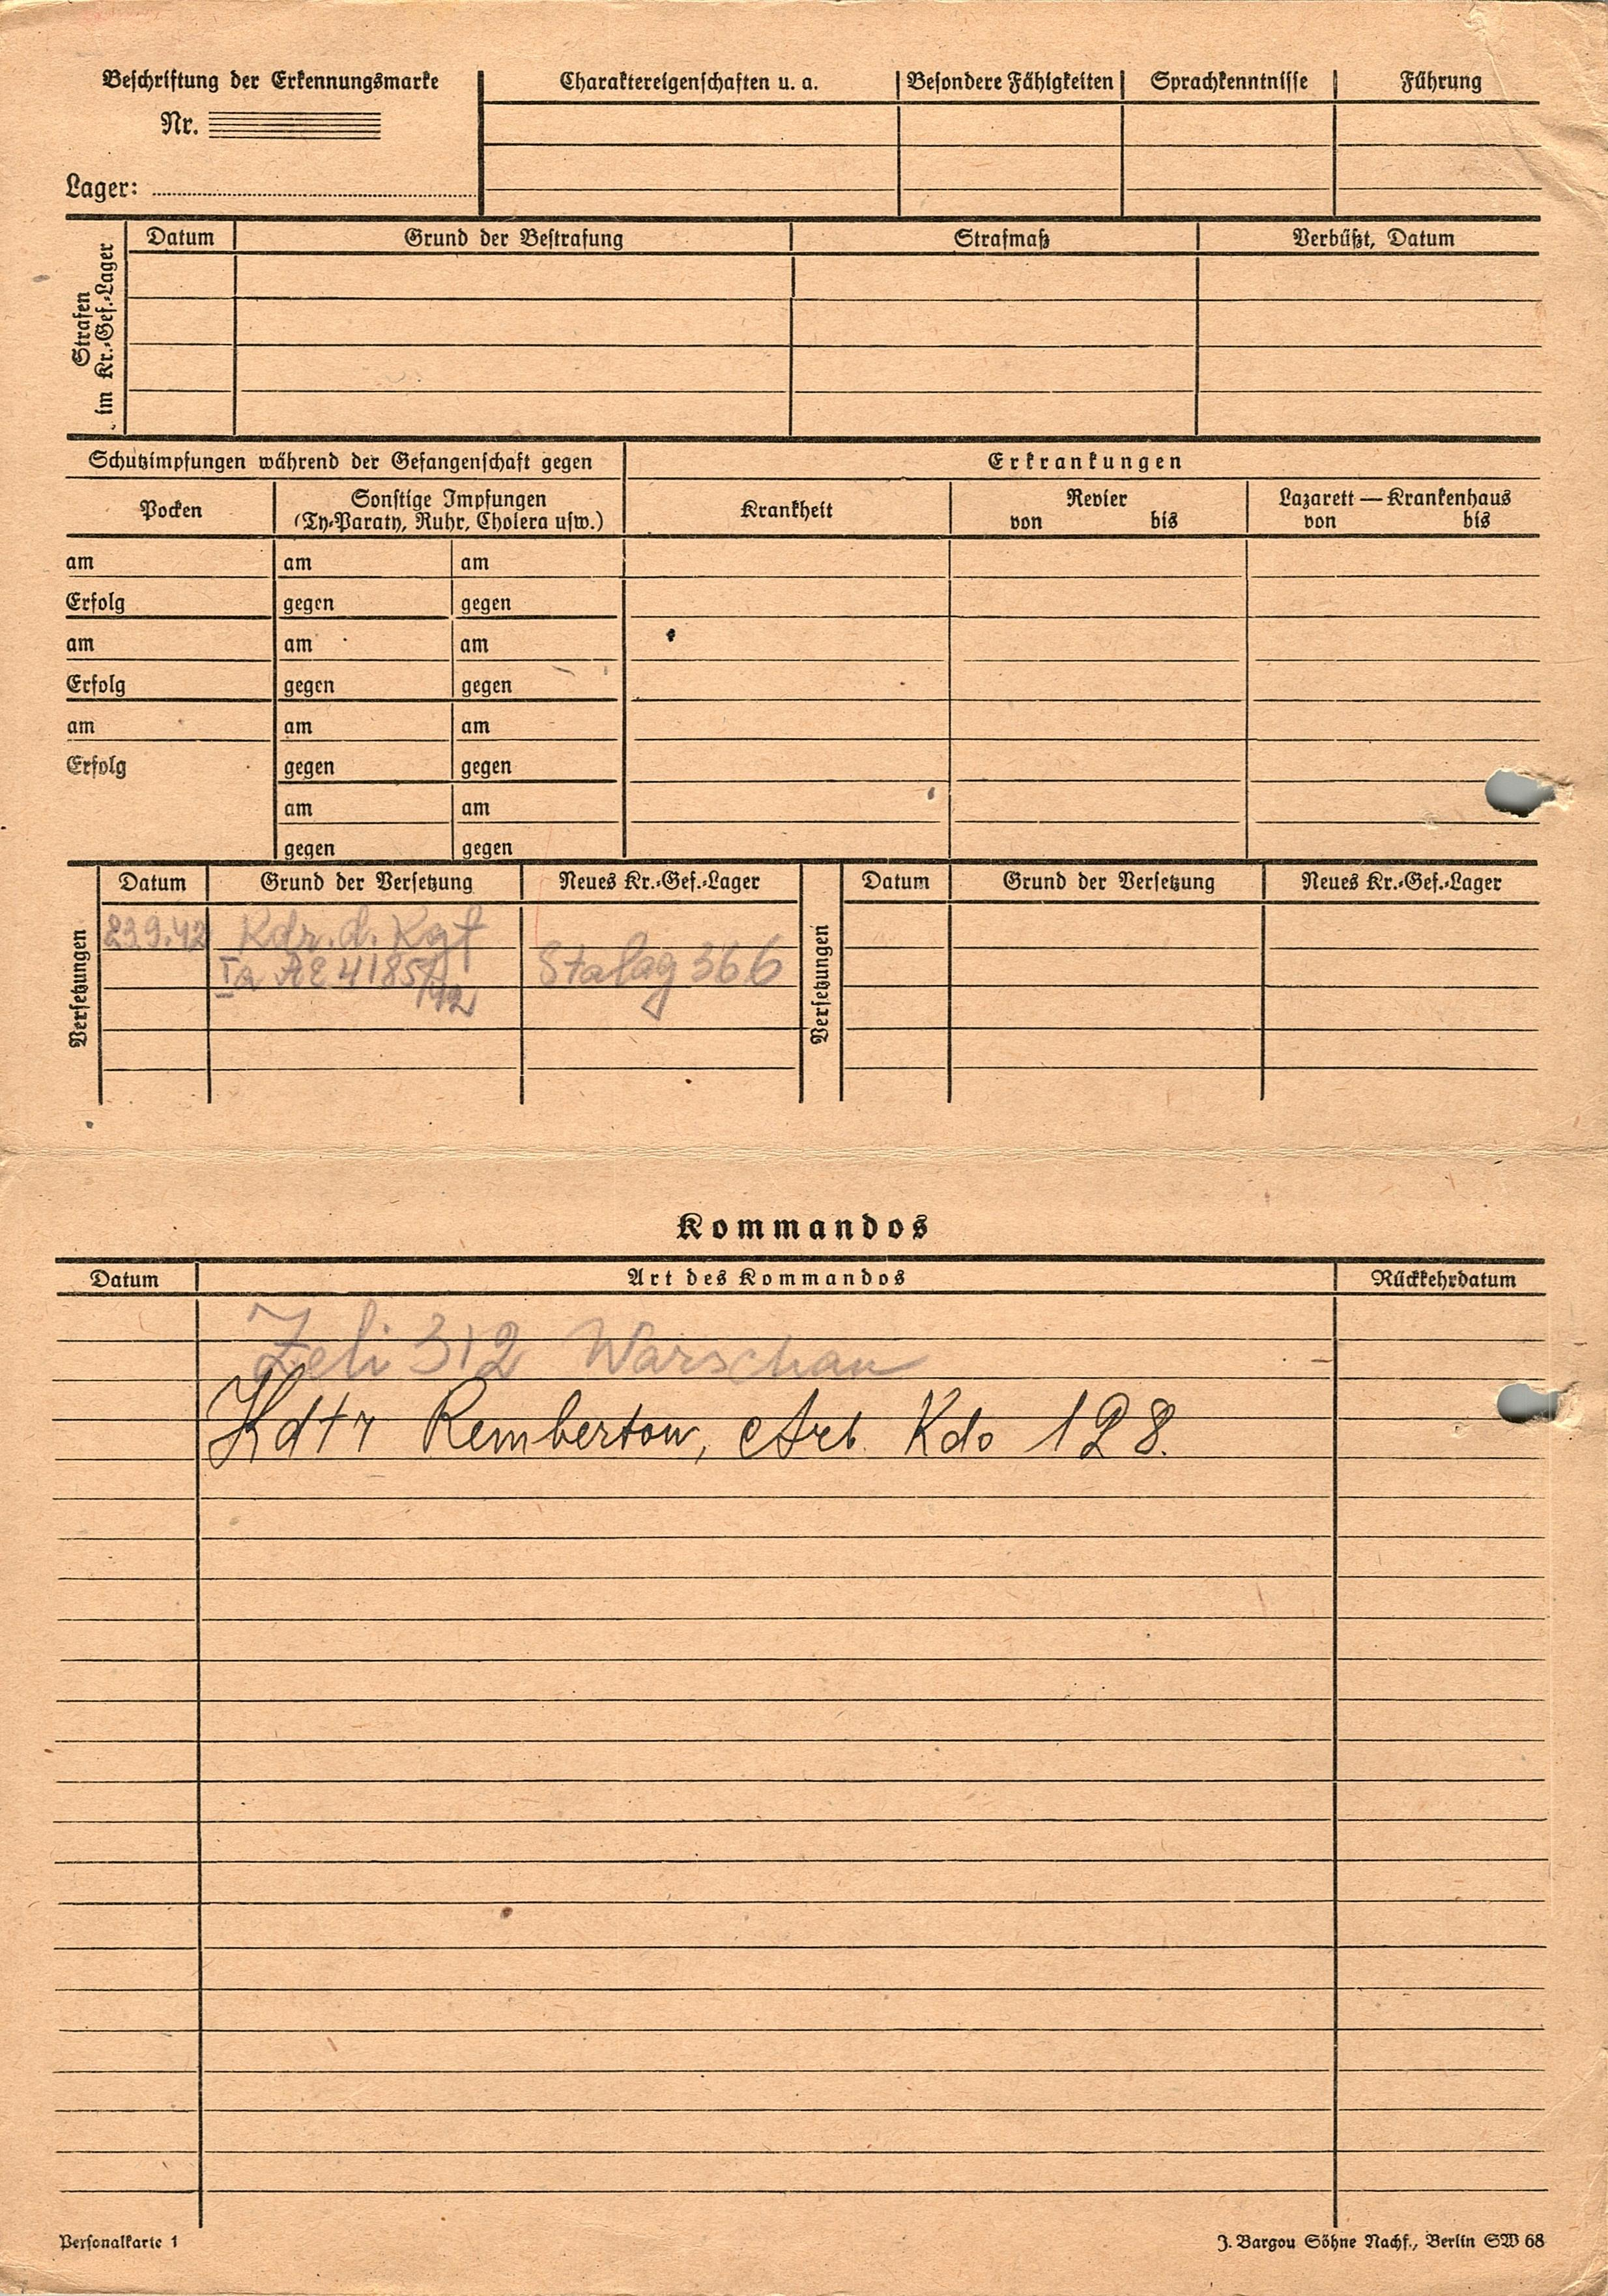 Beschriftung der Erkennungsmarke
Nr.
Lager:
Charaktereigenschaften u. a. Besondere Fähigkeiten Sprachkenntnisse Führung
Strafen
im Kr.-Gef.-Lager
Datum Grund der Bestrafung Strafmaß Verbüßt, Datum
Schutzimpfungen während der Gefangenschaft gegen Erkrankungen
Pocken
Sonstige Impfungen
(Ty-Paraty, Ruhr, Cholera usw.)
Krankheit
Revier
von bis
Lazarett — Krankenhaus
von bis
am am am
Erfolg gegen gegen
am am am
Erfolg gegen gegen
am am am
Erfolg gegen gegen
am am
gegen gegen
Versetzungen
Datum Grund der Versetzung Neues Kr.-Gef.-Lager
23.9.42 Kdr. d. Kgf
Ia AZ 4185/42 Stalag 366
Versetzungen
Datum Grund der Versetzung Neues Kr.-Gef.-Lager
Kommandos
Datum Art des Kommandos Rückkehrdatum
312 Warschau
Kdtr Rembertow, Arb. Kdo 128.
Personalkarte 1 J. Bargou Söhne Nachf., Berlin SW 68